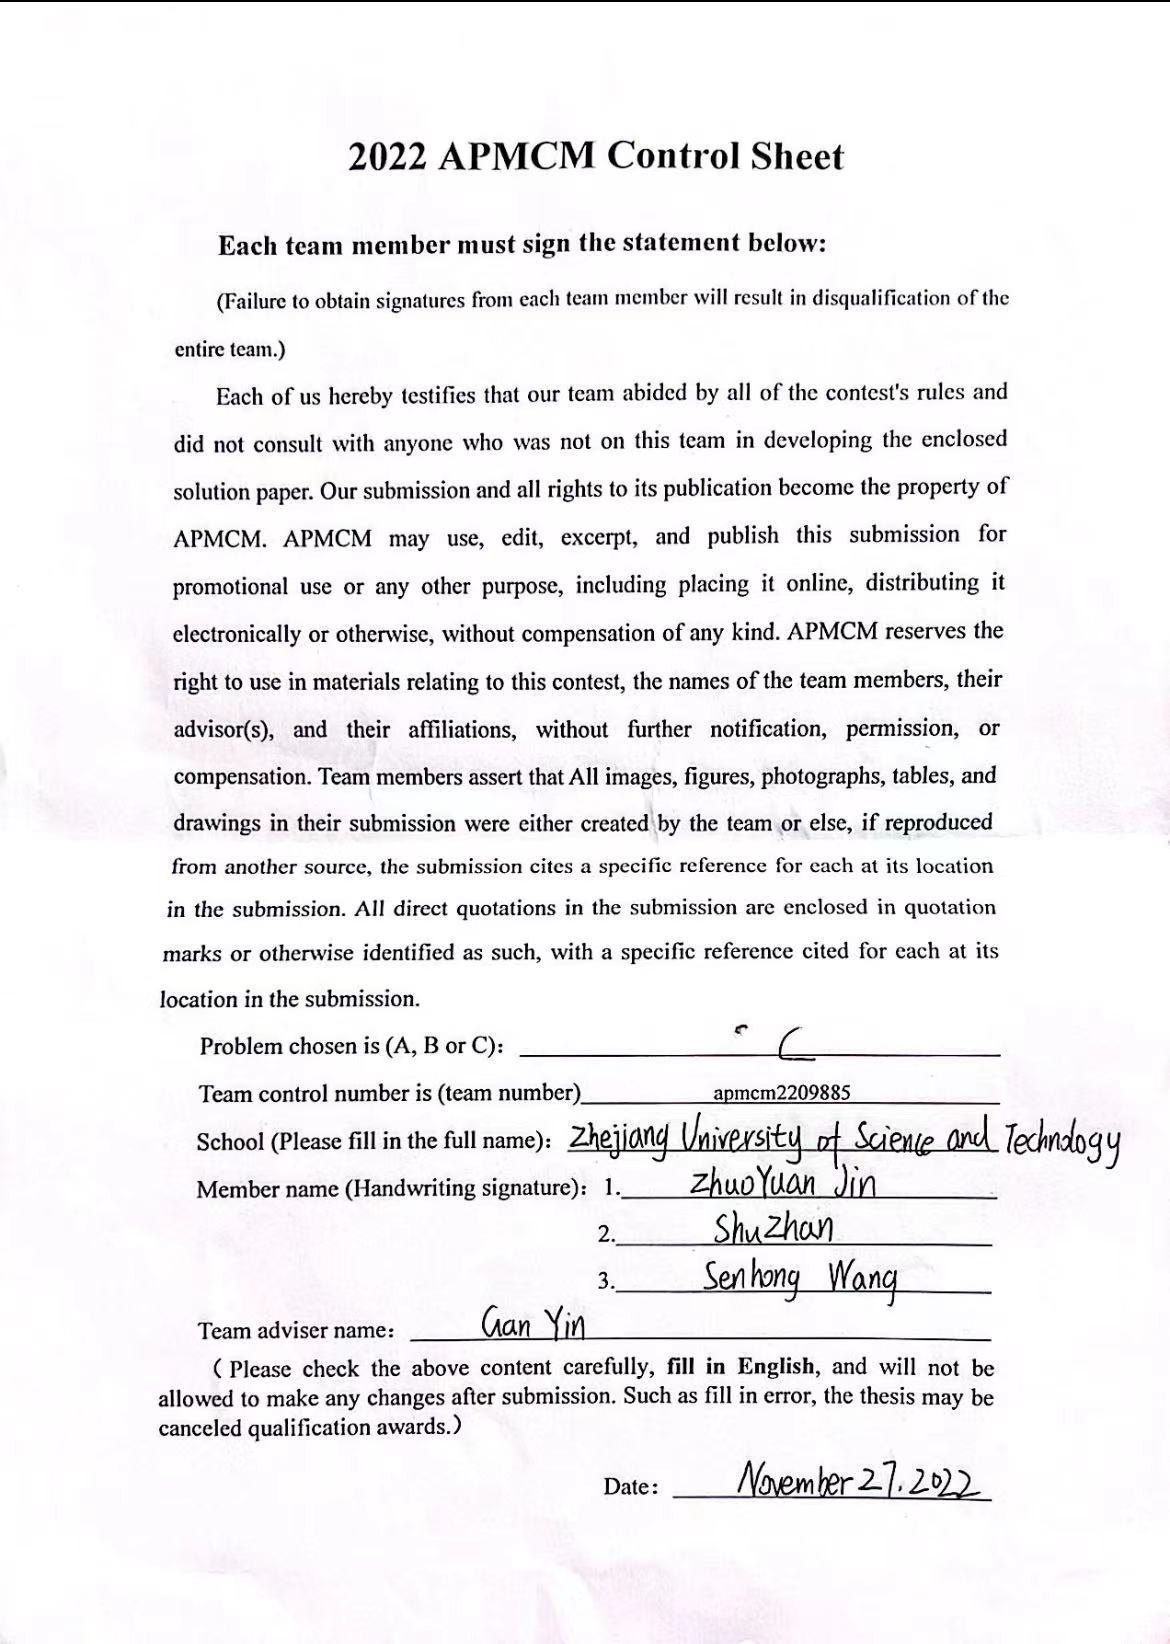 2022 APMCM Control Sheet
Each team member must sign the statement below:
(Failure to obtain signatures from each team member will result in disqualification of the
entire team.)
Each of us hereby testifies that our team abided by all of the contest's rules and
did not consult with anyone who was not on this team in developing the enclosed
solution paper. Our submission and all rights to its publication become the property of
APMCM. APMCM may use, edit, excerpt, and publish this submission for
promotional use or any other purpose, including placing it online, distributing it
electronically or otherwise, without compensation of any kind. APMCM reserves the
right to use in materials relating to this contest, the names of the team members, their
advisor(s), and their affiliations, without further notification, permission, or
compensation. Team members assert that All images, figures, photographs, tables, and
drawings in their submission were either created by the team or else, if reproduced
from another source, the submission cites a specific reference for each at its location
in the submission. All direct quotations in the submission are enclosed in quotation
marks or otherwise identified as such, with a specific reference cited for each at its
location in the submission.
Problem chosen is (A, B or C): C
Team control number is (team number) apmcm2209885
School (Please fill in the full name): Zhejiang University of Science and Technology
Member name (Handwriting signature): 1. ZhuoYuan Jin
2. Shuzhan
3. Senhong Wang
Team adviser name: Gan Yin
( Please check the above content carefully, fill in English, and will not be
allowed to make any changes after submission. Such as fill in error, the thesis may be
canceled qualification awards.)
Date: November 27. 2022